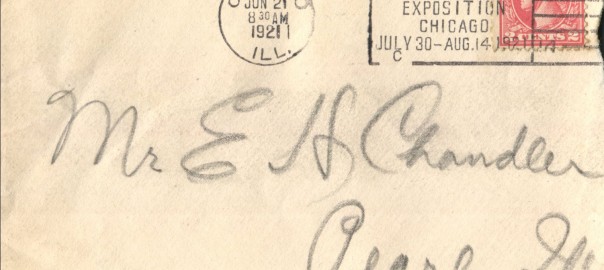 JUN 21
8 30 AM
1921
ILL.
EXPOSITION
CHICAGO
JULY 30-AUG.14 1921
C
2 CENTS 2
Mr E H Chandler
Pearl